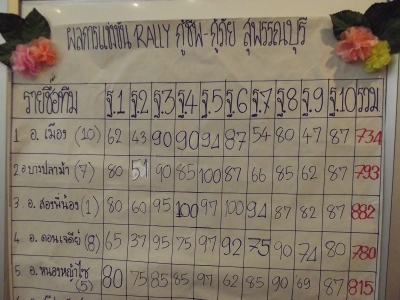 ผลการแข่งขัน RALLY กู้ชีพ-กู้ภัย สุพรรณบุรี
รายชื่อทีม ฐ.1 ฐ.2 ฐ.3 ฐ.4 ฐ.5 ฐ.6 ฐ.7 ฐ.8 ฐ.9 ฐ.10 รวม
1 อ. เมือง (10) 62 43 90 90 94 87 54 80 47 87 734
2 อ บางปลาม้า (7) 80 51 90 85 100 87 66 85 62 87 793
3 . อ. สองพี่น้อง (1) 80 60 95 100 97 100 94 87 82 87 882
4 . อ. ดอนเจดีย์ (8) 65 37 95 75 97 92 75 90 74 80 780
5 . อ. หนองหญ้าไซ (5) 80 75 85 85 97 62 85 90 69 87 815